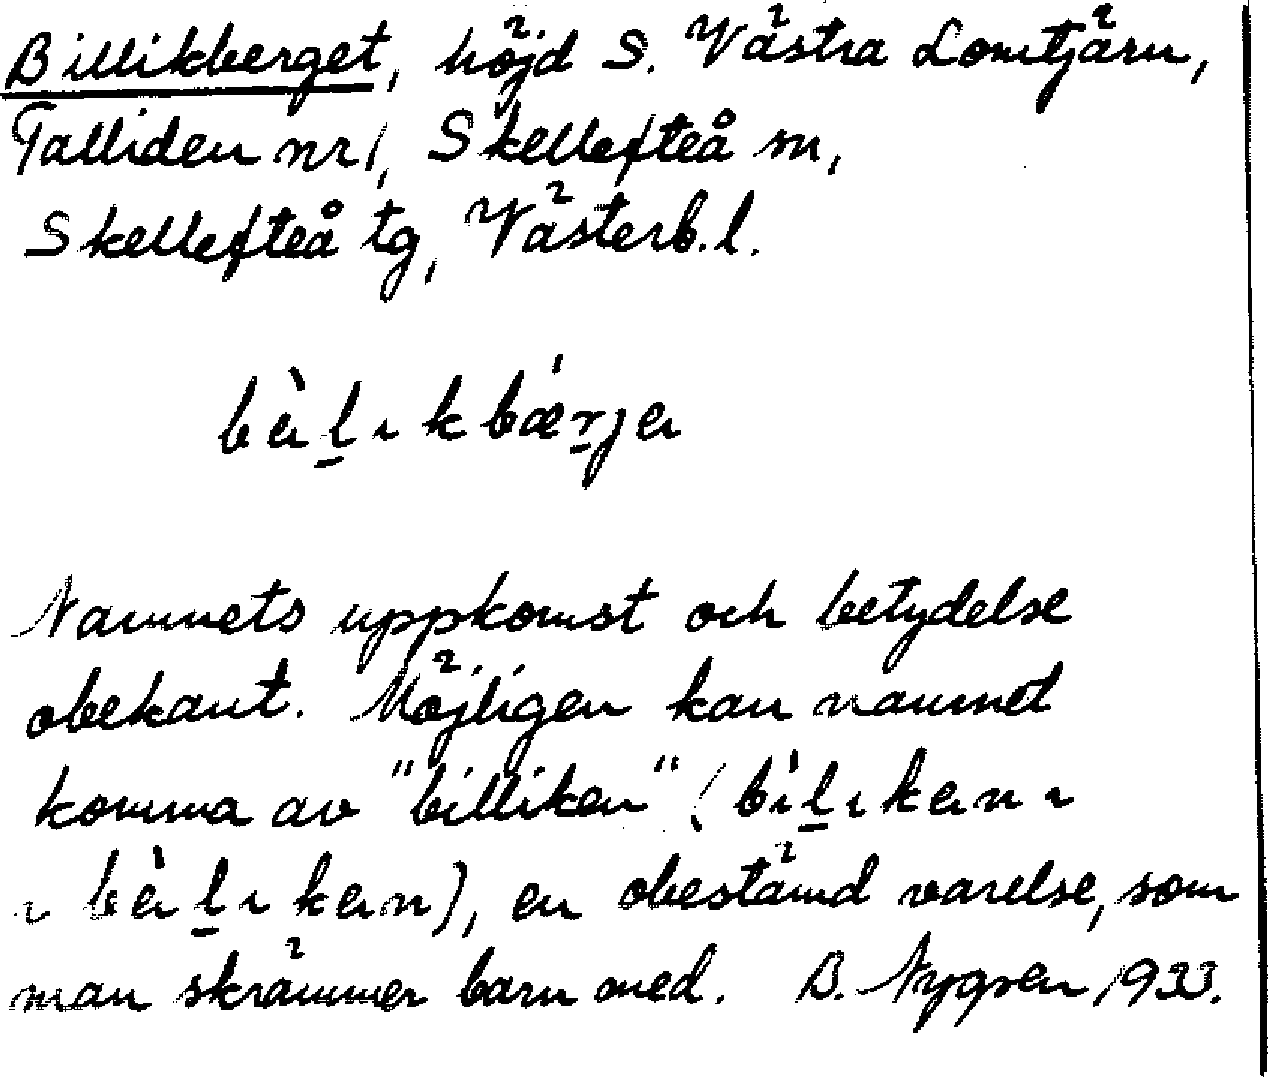 Billikberget, höjd S. Västra Lomtjärn,
Talliden nr 1, Skellefteå sn,
Skellefteå tg, Västerb. l.
Namnets uppkomst och betydelse
obekant. Möjligen kan namnet
komma av "billiken" (
), en obestämd varelse, som
man skrämmer barn med. B. Nygren 1933.